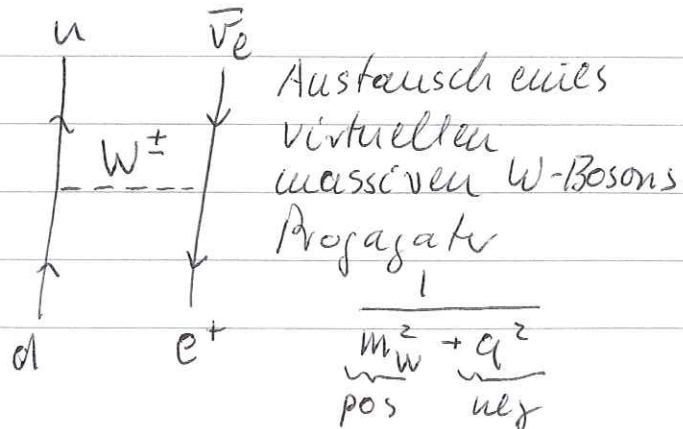 u ν̄e
Austausch eines
virtuellen
W±
massiven W-Bosons
Progagator
1
d e+
m_W² + q²
pos neg